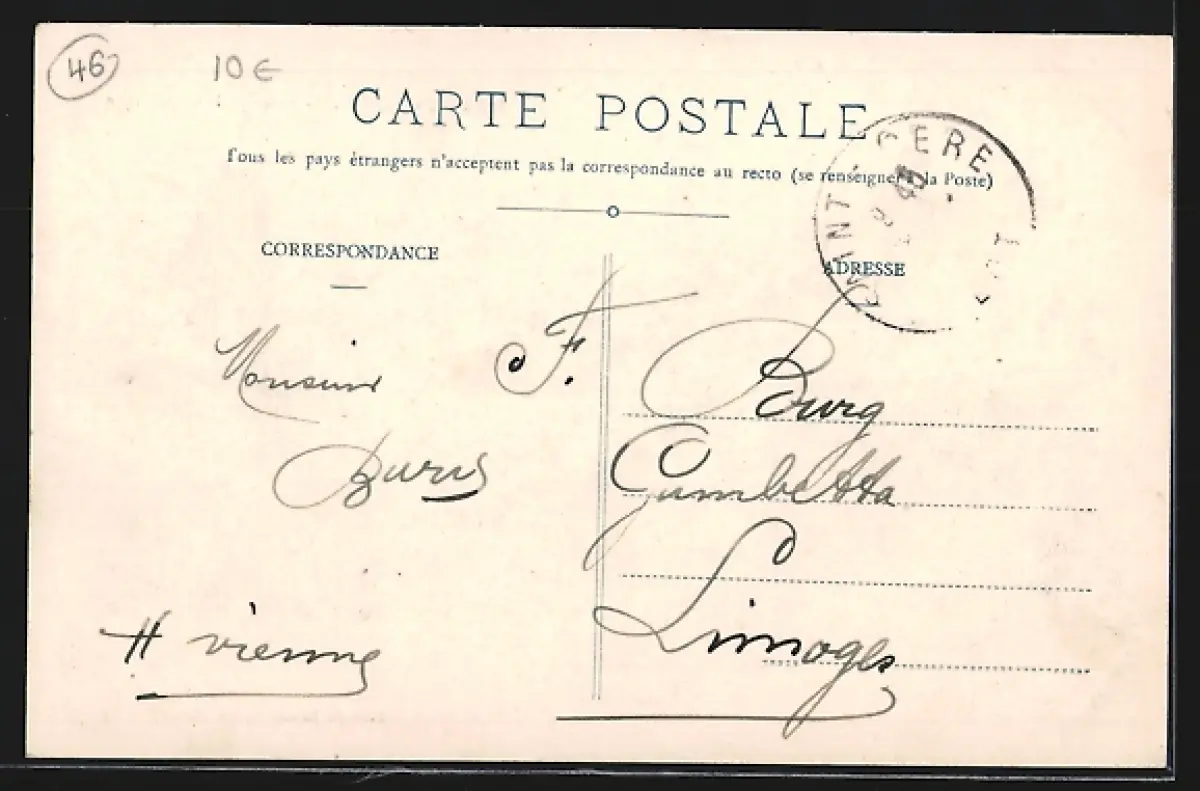 46
10 €
CARTE POSTALE
Tous les pays étrangers n'acceptent pas la correspondance au recto (se renseigner à la Poste)
CORRESPONDANCE
ADRESSE
SAINT CERE
LOT
Monsieur F. Burg
Gambetta
Limoges
H vienne